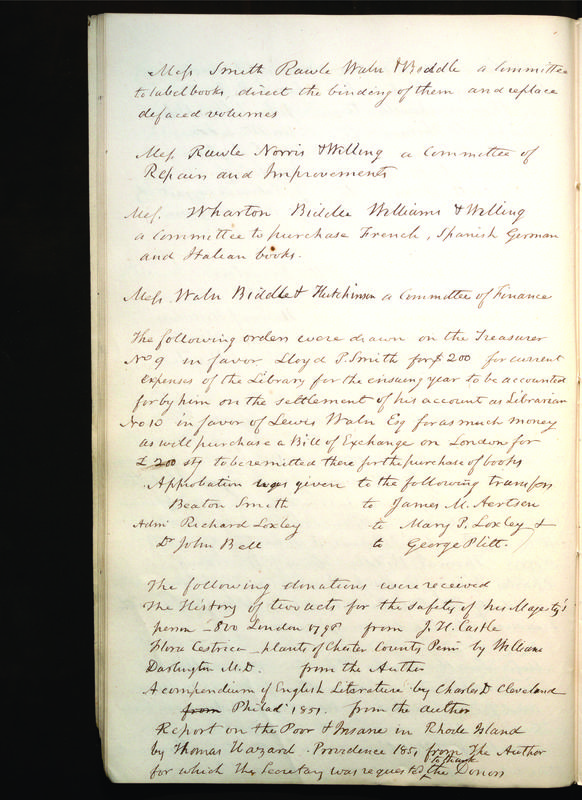 Mess Smith Rawle Waln & Biddle a Committee
to label books, direct the binding of them and replace
defaced volumes
Mess. Rawle Norris & Welling a Committee of
Repairs and Improvements
Mess. Wharton Biddle Williams & Welling
a Committee to purchase French, Spanish German
and Italian books.
Mess Waln Biddle & Hutchinson a Committee of Finance
The following orders were drawn on the Treasurer
No 9 in favor Lloyd P. Smith for $200 for current
expenses of the Library for the ensuing year to be accounted
for by him on the settlement of his account as Librarian
No 10 in favor of Lewis Waln Esq for as much money
as will purchase a Bill of Exchange on London for
£ 200 stg to be remitted there for the purchase of books
Approbation was given to the following transfers
Beaton Smith to James M. Aertsen
Admr Richard Loxley to Mary P. Loxley &
Dr John Bell to George Plitt.
The following donations were received
The History of two acts for the safety of his Majesty's
person - 8vo London 1796 from J. H. Castle
Flora Cestrica - plants of Chester County Penn by William
Darlington M.D. from the Author
A compendium of English Literature by Charles D Cleveland
from Philad 1851. from the author
Report on the Poor & Insane in Rhode Island
by Thomas Hazard. Providence 1851 from The Author
for which the Secretary was requested to thank the Donors